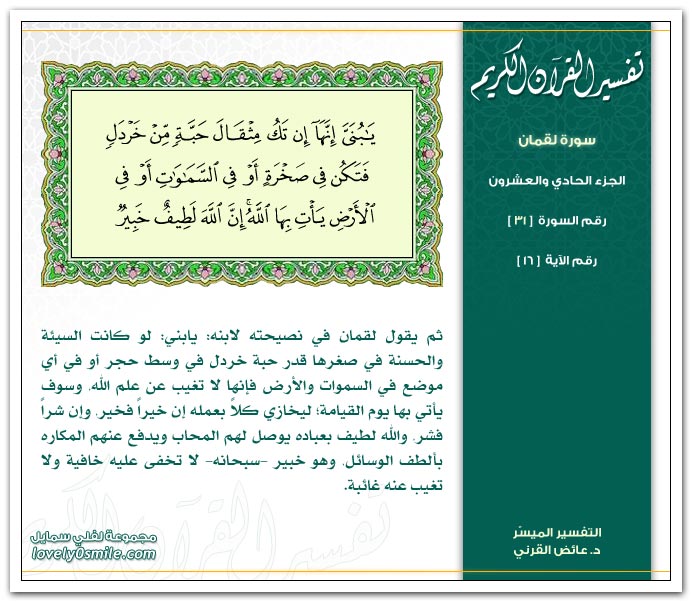 تفسير القرآن الكريم
سورة لقمان
الجزء الحادي والعشرون
رقم السورة [ ٣١ ]
رقم الآية [ ١٦ ]
يَـٰبُنَىَّ إِنَّهَآ إِن تَكُ مِثْقَالَ حَبَّةٍ مِّنْ خَرْدَلٍ
فَتَكُن فِى صَخْرَةٍ أَوْ فِى ٱلسَّمَـٰوَٰتِ أَوْ فِى
ٱلْأَرْضِ يَأْتِ بِهَا ٱللَّهُ ۚ إِنَّ ٱللَّهَ لَطِيفٌ خَبِيرٌ
ثم يقول لقمان في نصيحته لابنه: يابني: لو كانت السيئة
والحسنة في صغرها قدر حبة خردل في وسط حجر أو في أي
موضع في السموات والأرض فإنها لا تغيب عن علم الله، وسوف
يأتي بها يوم القيامة؛ ليخازي كلاً بعمله إن خيراً فخير، وإن شراً
فشر، والله لطيف بعباده يوصل لهم المحاب ويدفع عنهم المكاره
بألطف الوسائل، وهو خبير -سبحانه- لا تخفى عليه خافية ولا
تغيب عنه غائبة.
تفسير القرآن الكريم
مجموعة لفلي سمايل
lovely0smile.com
التفسير الميسّر
د. عائض القرني